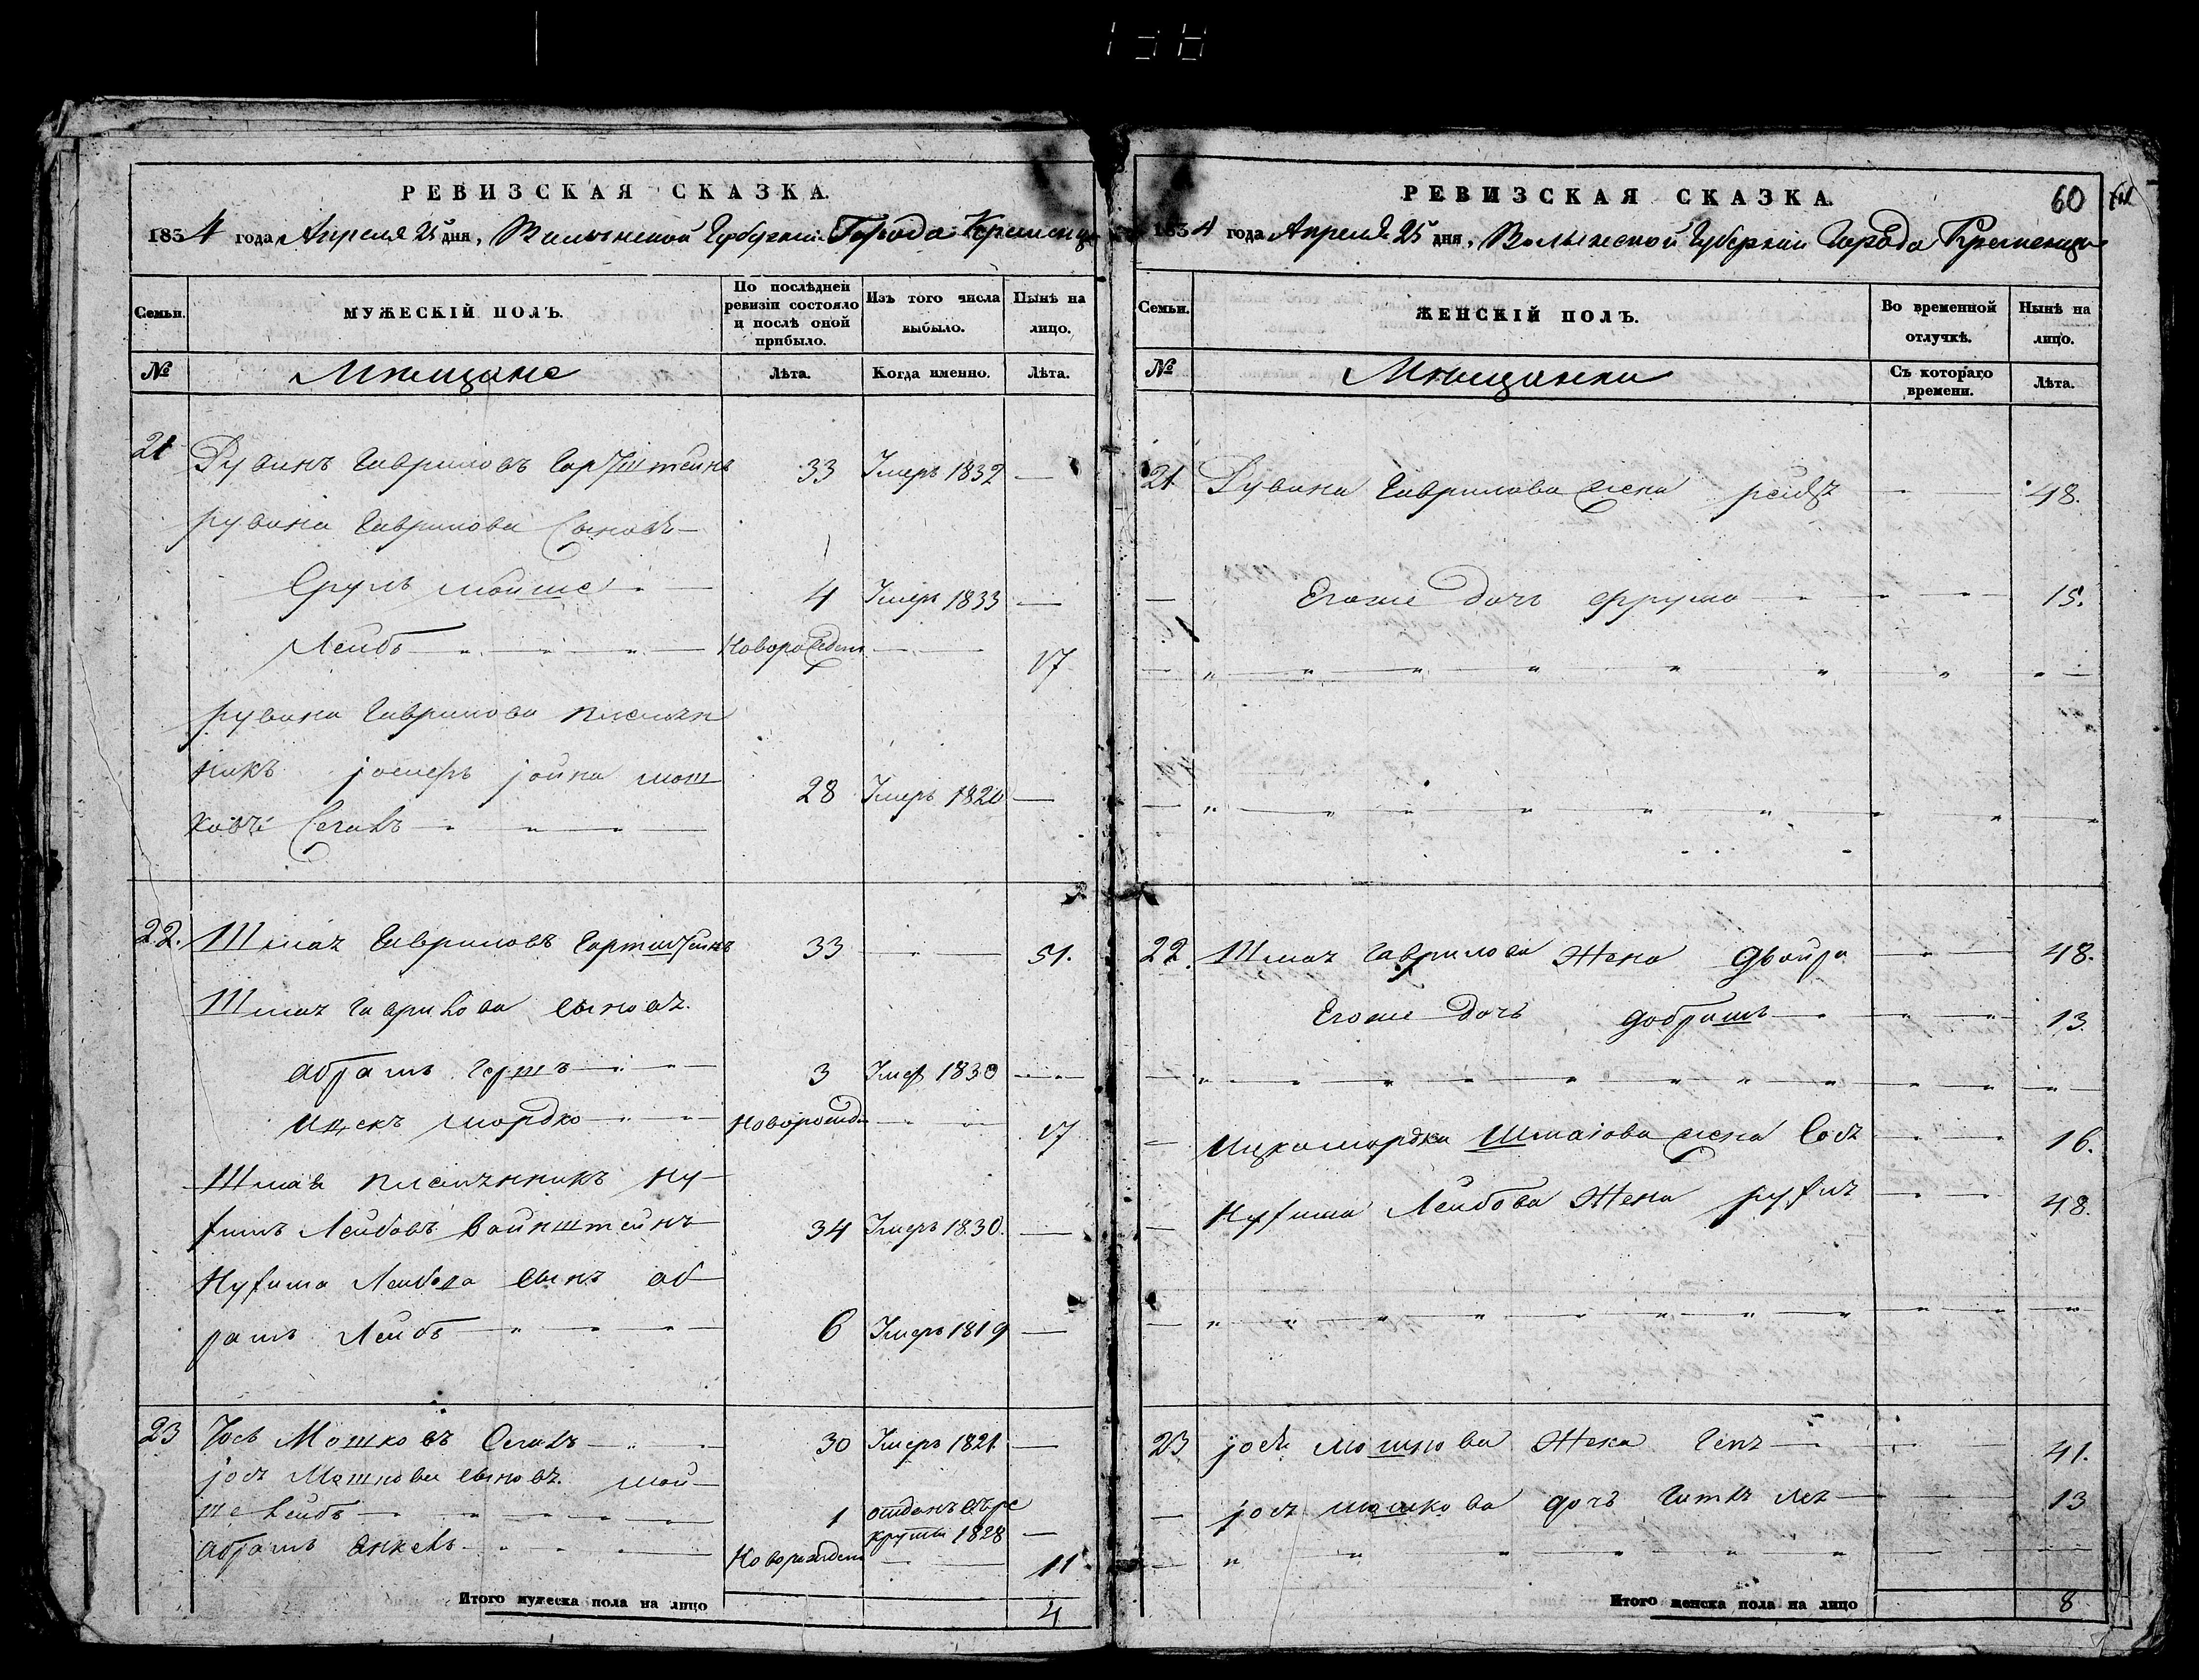 РЕВИЗСКАЯ СКАЗКА.
1834 года Апреля 25 дня, Волынской Губерніи Города Кременца
Семьи.
МУЖЕСКІЙ ПОЛЪ.
По послѣдней ревизіи состояло и послѣ оной прибыло.
Изъ того числа выбыло.
Нынѣ на лицо.
№
Мещане
Лѣта.
Когда именно.
Лѣта.
21 Рувинъ Гавриловъ 33 Умеръ 1832 —
рувина Гаврилова Сыновъ
Сруль мойше 4 Умеръ 1833 —
Лейбъ Новорожден 17
рувина Гаврилова племян
никъ іоина мош 28 Умеръ 1820 —
ковъ Сегалъ
22. Шмая Гавриловъ 33 — 51.
Шмая Гаврилова сыновъ.
абрамъ гершъ 3 Умер 1830
ицекъ мордко Новорожд 17
Шмая племянникъ ну
химъ Лейбовъ вайнштейнъ 34 Умеръ 1830. —
Нухима Лейбова сынъ аб
рамъ Лейбъ 6 Умеръ 1819 —
23 Іось Мошковъ Сегалъ 30 Умеръ 1821 —
іося Мошкова сыновъ. мой
ше Лейбъ 1 отданъ въ ре
круты 1828 —
абрамъ анкель Новорожден 11
Итого мужеска пола на лицо 4
РЕВИЗСКАЯ СКАЗКА. 60
1834 года Апреля 25 дня, Волынской Губерніи Города Кременца
Семьи.
ЖЕНСКІЙ ПОЛЪ.
Во временной отлучкѣ.
Нынѣ на лицо.
№
Мещанки
Съ котораго времени.
Лѣта.
21. Рувина Гаврилова жена 48.
Егоже дочь фрума 15.
22. Шмая Гаврилова Жена двойра 48.
Егоже дочь добришъ 13
Ицкамордка Шмаіова жена Сося 16.
Нухима Лейбова Жена рухля 48.
23 іося мошкова Жена Геня 41.
іося мошкова дочь Гитля лея 13
Итого женска пола на лицо 8